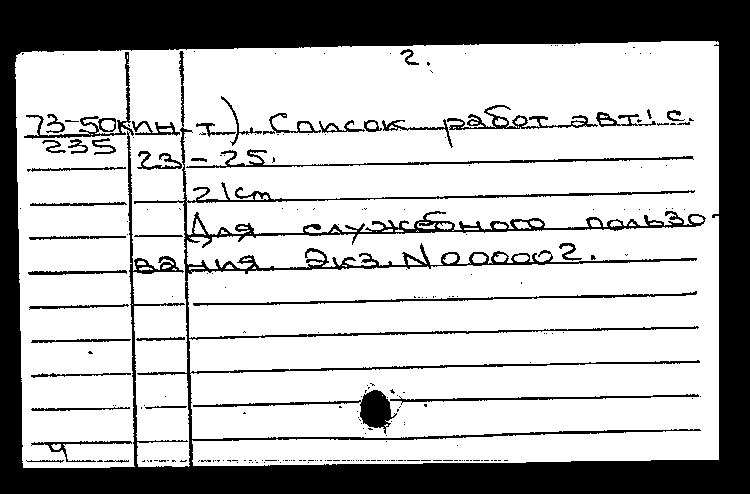 2.
73-50кин-т). Список работ авт.: с.
235 23-25.
21cm
Для служебного пользо-
вания. Экз. N000002.
4